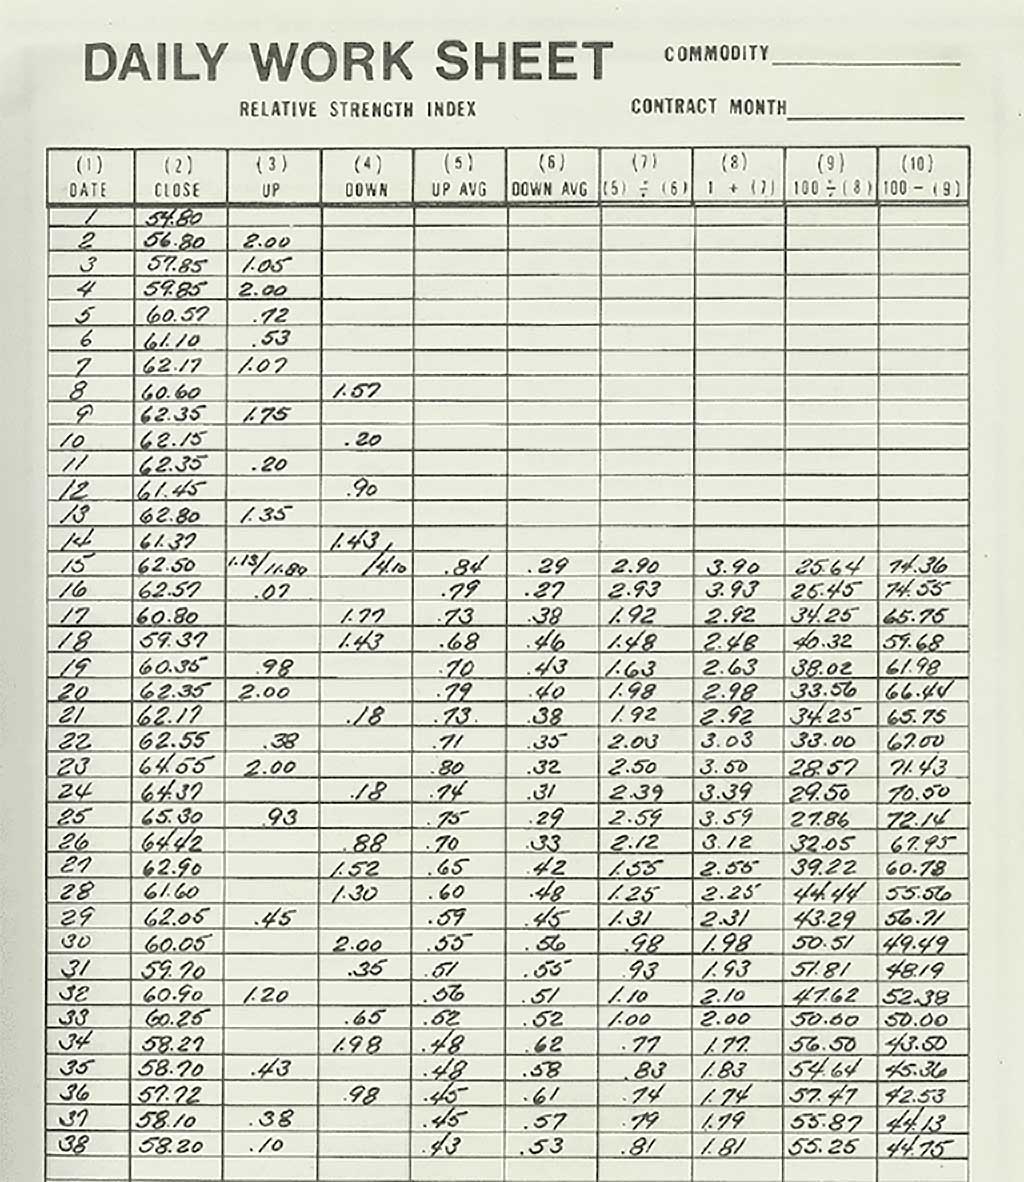 DAILY WORK SHEET COMMODITY
RELATIVE STRENGTH INDEX CONTRACT MONTH
(1) (2) (3) (4) (5) (6) (7) (8) (9) (10)
DATE CLOSE UP DOWN UP AVG DOWN AVG (5) ÷ (6) 1 + (7) 100 ÷ (8) 100 - (9)
1 54.80
2 56.80 2.00
3 57.85 1.05
4 59.85 2.00
5 60.57 .72
6 61.10 .53
7 62.17 1.07
8 60.60 1.57
9 62.35 1.75
10 62.15 .20
11 62.35 .20
12 61.45 .90
13 62.80 1.35
14 61.37 1.43
15 62.50 1.13/11.80 /4.10 .84 .29 2.90 3.90 25.64 74.36
16 62.57 .07 .79 .27 2.93 3.93 25.45 74.55
17 60.80 1.77 .73 .38 1.92 2.92 34.25 65.75
18 59.37 1.43 .68 .46 1.48 2.48 40.32 59.68
19 60.35 .98 .70 .43 1.63 2.63 38.02 61.98
20 62.35 2.00 .79 .40 1.98 2.98 33.56 66.44
21 62.17 .18 .73 .38 1.92 2.92 34.25 65.75
22 62.55 .38 .71 .35 2.03 3.03 33.00 67.00
23 64.55 2.00 .80 .32 2.50 3.50 28.57 71.43
24 64.37 .18 .74 .31 2.39 3.39 29.50 70.50
25 65.30 .93 .75 .29 2.59 3.59 27.86 72.14
26 64.42 .88 .70 .33 2.12 3.12 32.05 67.95
27 62.90 1.52 .65 .42 1.55 2.55 39.22 60.78
28 61.60 1.30 .60 .48 1.25 2.25 44.44 55.56
29 62.05 .45 .59 .45 1.31 2.31 43.29 56.71
30 60.05 2.00 .55 .56 .98 1.98 50.51 49.49
31 59.70 .35 .51 .55 .93 1.93 51.81 48.19
32 60.90 1.20 .56 .51 1.10 2.10 47.62 52.38
33 60.25 .65 .52 .52 1.00 2.00 50.00 50.00
34 58.27 1.98 .48 .62 .77 1.77 56.50 43.50
35 58.70 .43 .48 .58 .83 1.83 54.64 45.36
36 57.72 .98 .45 .61 .74 1.74 57.47 42.53
37 58.10 .38 .45 .57 .79 1.79 55.87 44.13
38 58.20 .10 .43 .53 .81 1.81 55.25 44.75